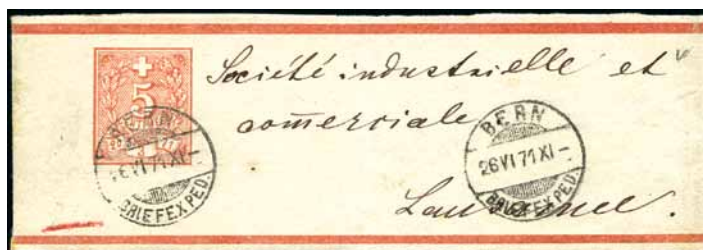 5
Société industrielle et
comerciale
BERN
26 VI 71 XI -
BRIEFEXPED.
BERN
26 VI 71 XI -
BRIEFEXPED.
Lausanne.